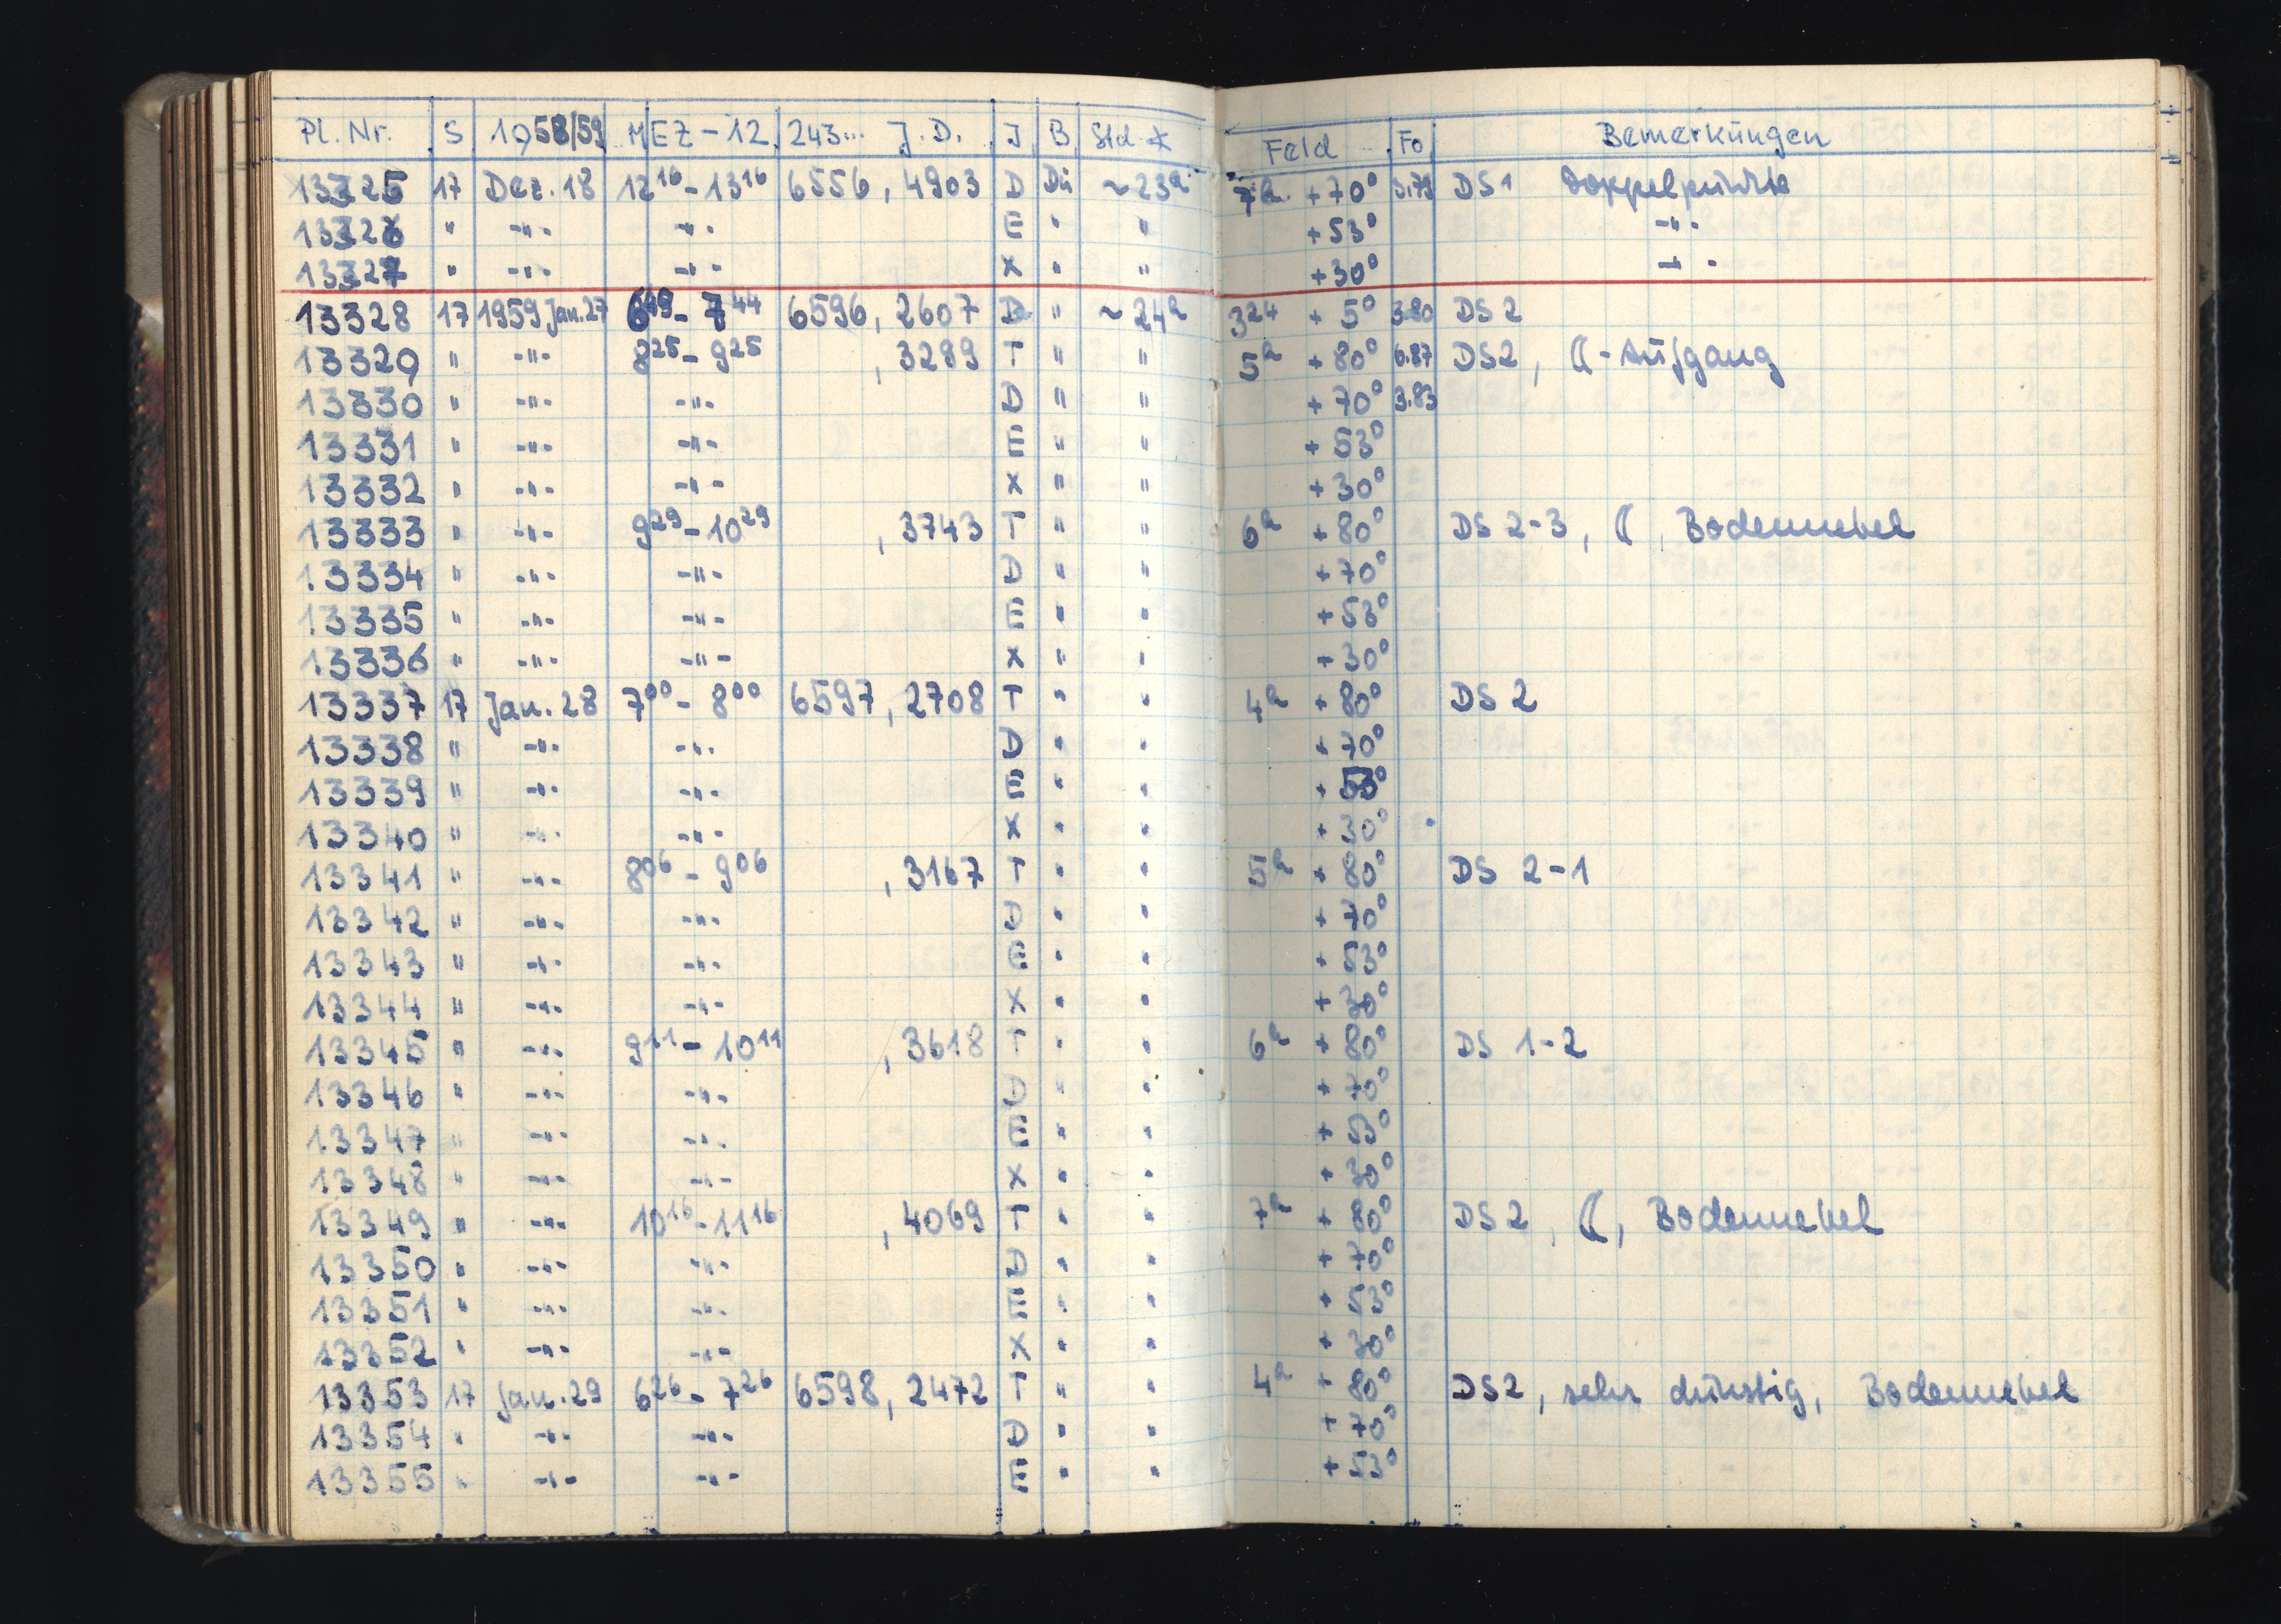 Pl. Nr. S 1958/59 MEZ-12 243... J.D. J B Std * Feld Fo Bemerkungen
13325 17 Dez. 18 12¹⁶-13¹⁶ 6556, 4903 D Dü ~23ʰ 7ʰ +70° DS1 Doppelpunkte
13326 " -"- -"- E " " +53° -"-
13327 " -"- -"- X " " +30° -"-
13328 17 1959 Jan. 27 6⁴⁹-7⁴⁴ 6596, 2607 D " ~24ʰ 3²⁴ +5° 3.80 DS2
13329 " -"- 8²⁵-9²⁵ , 3289 T " " 5ʰ +80° 6.87 DS2, ☾-Aufgang
13330 " -"- -"- D " " +70° 3.83
13331 " -"- -"- E " " +53°
13332 " -"- -"- X " " +30°
13333 " -"- 9²⁹-10²⁹ , 3743 T " " 6ʰ +80° DS 2-3, ☾, Bodennebel
13334 " -"- -"- D " " +70°
13335 " -"- -"- E " " +53°
13336 " -"- -"- X " " +30°
13337 17 Jan. 28 7⁰⁰-8⁰⁰ 6597, 2708 T " " 4ʰ +80° DS 2
13338 " -"- -"- D " " +70°
13339 " -"- -"- E " " +53°
13340 " -"- -"- X " " +30°
13341 " -"- 8⁰⁶-9⁰⁶ , 3167 T " " 5ʰ +80° DS 2-1
13342 " -"- -"- D " " +70°
13343 " -"- -"- E " " +53°
13344 " -"- -"- X " " +30°
13345 " -"- 9¹¹-10¹¹ , 3618 T " " 6ʰ +80° DS 1-2
13346 " -"- -"- D " " +70°
13347 " -"- -"- E " " +53°
13348 " -"- -"- X " " +30°
13349 " -"- 10¹⁶-11¹⁶ , 4069 T " " 7ʰ +80° DS2, ☾, Bodennebel
13350 " -"- -"- D " " +70°
13351 " -"- -"- E " " +53°
13352 " -"- -"- X " " +30°
13353 17 Jan. 29 6²⁶-7²⁶ 6598, 2472 T " " 4ʰ +80° DS2, sehr dunstig, Bodennebel
13354 " -"- -"- D " " +70°
13355 " -"- -"- E " " +53°